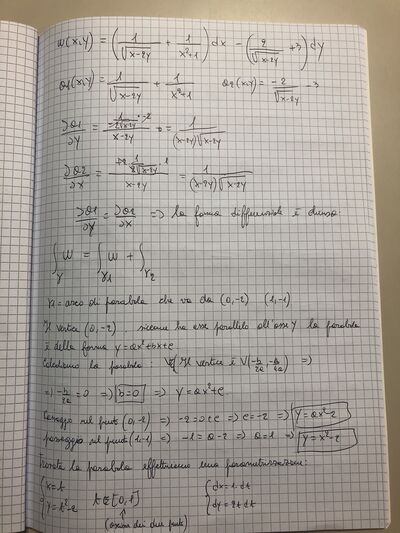 ω(x,y) = (1/√(x-2y) + 1/(x²+1)) dx - (2/√(x-2y) + 3) dy
a1(x,y) = 1/√(x-2y) + 1/(x²+1)    a2(x,y) = -2/√(x-2y) - 3
∂a1/∂y = (-1/(2√(x-2y)) · -2)/(x-2y) = 1/((x-2y)√(x-2y))
∂a2/∂x = (1/(2√(x-2y)) · 1)/(x-2y) = 1/((x-2y)√(x-2y))
∂a1/∂y = ∂a2/∂x => la forma differenziale è chiusa:
∫γ ω = ∫γ1 ω + ∫γ2
γ1 = arco di parabola che va da (0,-2) (1,-1)
Il vertice (0,-2). siccome ha asse parallelo all'asse Y la parabola
è della forma y=ax²+bx+c
Calcoliamo la parabola: Il vertice è V(-b/2a, -Δ/4a) =>
=> -b/2a = 0 => b=0 => y=ax²+c
passaggio nel punto (0,-2) => -2=0+c => c=-2 => y=ax²-2
passaggio nel punto (1-1) => -1=a-2 => a=1 => y=x²-2
Trovata la parabola effettuiamo una parametrizzazione:
{x=t    {dx=1·dt
{y=t²-2    t∈[0,1]    {dy=2t dt
(ascisse dei due punti)